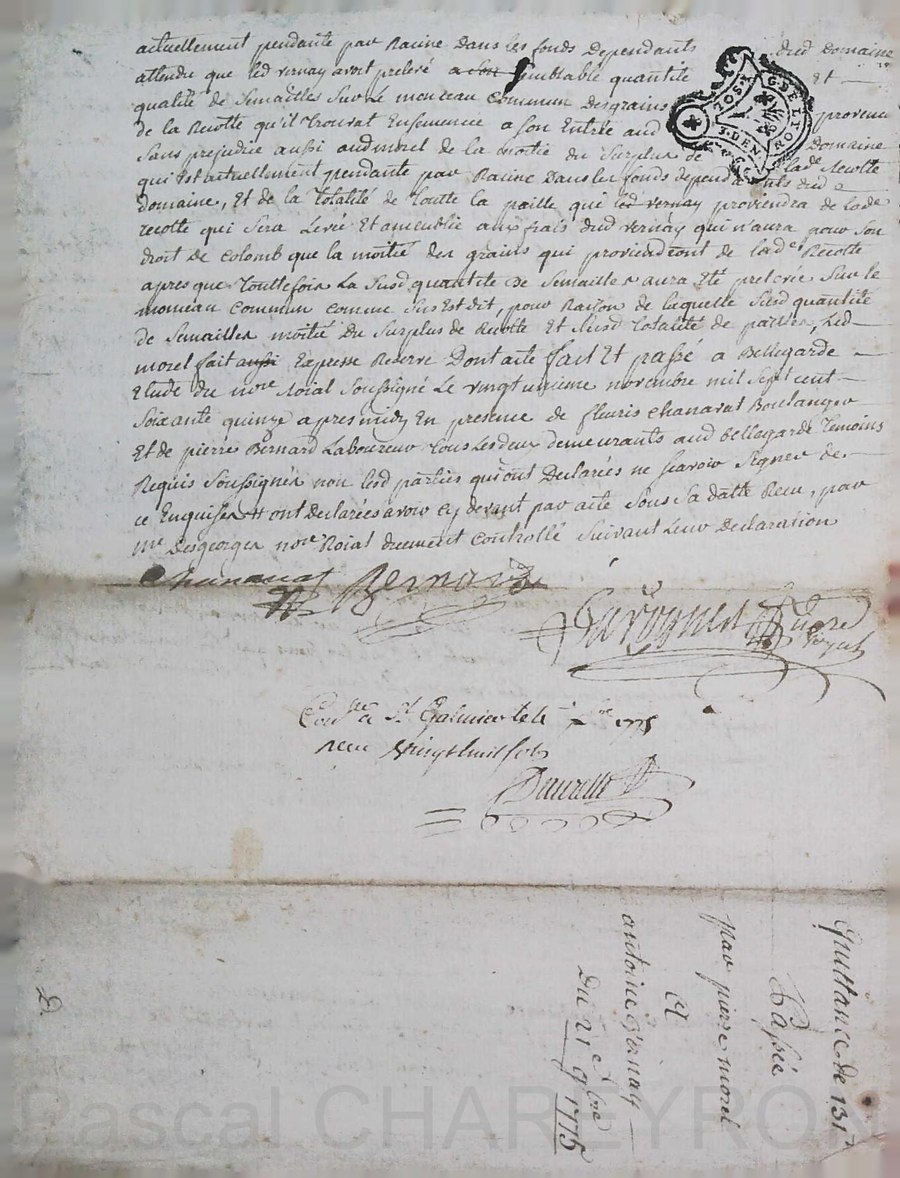 actuellement pendante par Racine Dans les fonds Dependants dud domaine
attendu que led vernay avoit prelevé a son semblable quantité et
qualité de Semailles Sur Le monceau Commun des grains provenu
de la Recolte qu'il trouvat Ensemencé a son Entrée aud Domaine
Sans prejudice aussi aud morel de la moitié du Surplus de lade Recolte
qui Est actuellement pendante par Racine Dans les fonds dependants dud
domaine, Et de la totalité de toutte la paille qui led vernay proviendra de lade
recolte qui Sera Levée Et ameublie aux frais dud vernay qui n'aura pour Son
droit de Colomb que la moitié des grains qui proviendront de lade Recolte
apres que Touttefois La Susd quantité de Semailles aura Eté prelevée Sur le
monceau Commun comme Sus Est dit, pour Raizon de laquelle Susd quantité
de Semailles moitié Du Surplus de Recolte Et Susd totalité de pailles, Led
morel fait aussi Expresse Reserve Dont acte fait Et passé a Bellegarde
Etude du nore Roial Soussigné Le vingt unieme novembre mil Sept cent
Soixante quinze apres midy En presence de fleuris Chanavat Boulanger
Et de pierre Bernard Laboureur tous Les deux demeurants aud Bellegarde Temoins
Requis Soussignés non lesd parties qui ont Declarées ne Scavoir Signer de
ce Enquises ont declarées avoir cy devant par acte Sous Sa datte Reçu, par
me Desgeorges nore Roial duement Controllé Suivant Leur Declaration
Chanavat Bernard
Conlle a St Galmier le 1775
reçu vingt huit sols
G. DE LYON
2. SOLS
DEN
Quittance de 131#
Passée
par pierre morel
a
antoine Vernay
Du 21e 9bre 1775
Pascal CHAREYRON